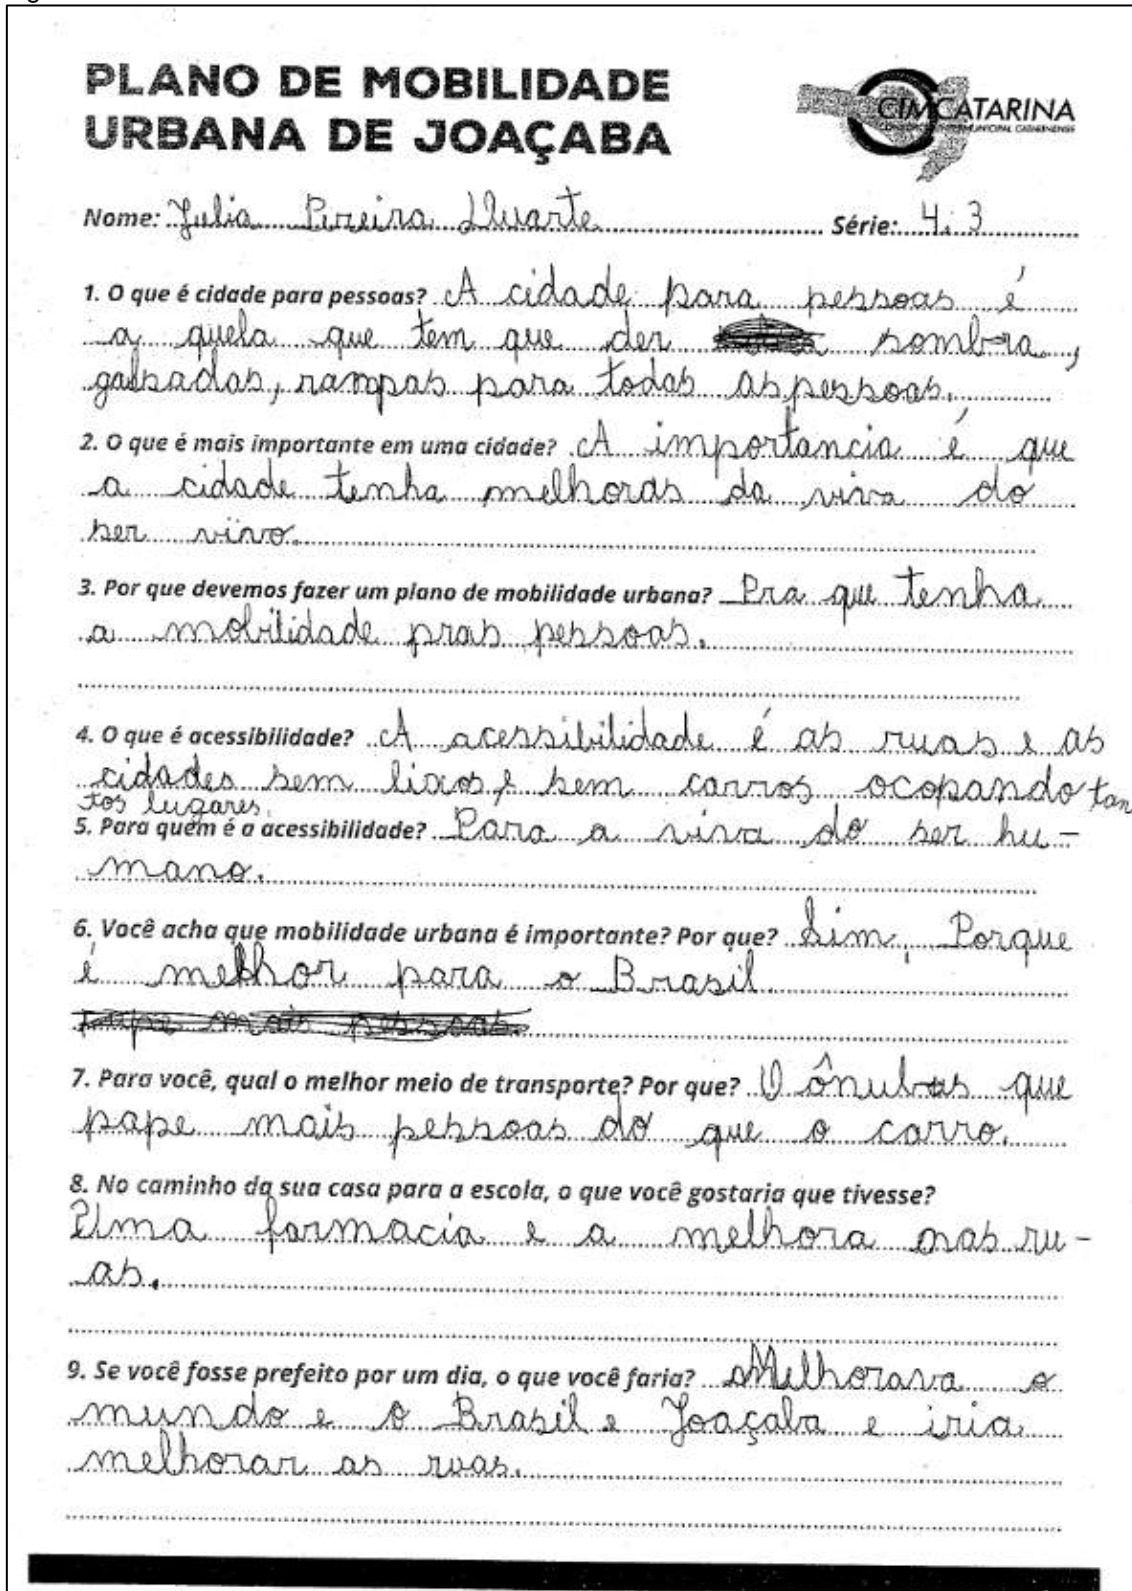 PLANO DE MOBILIDADE
URBANA DE JOAÇABA
CIMCATARINA
Nome: Julia Pereira Duarte Série: 4.3
1. O que é cidade para pessoas? A cidade para pessoas é
a quela que tem que der sombra,
galsadas, rampas para todas as pessoas.
2. O que é mais importante em uma cidade? A importancia é que
a cidade tenha melhoras da viva do
ser vivo.
3. Por que devemos fazer um plano de mobilidade urbana? Pra que tenha
a mobilidade pras pessoas.
4. O que é acessibilidade? A acessibilidade é as ruas e as
cidades sem lixos e sem carros ocopando tan
tos lugares.
5. Para quem é a acessibilidade? Para a viva do ser hu-
mano.
6. Você acha que mobilidade urbana é importante? Por que? Sim, Porque
é melhor para o Brasil.
7. Para você, qual o melhor meio de transporte? Por que? O ônubus que
pape mais pessoas do que o carro.
8. No caminho da sua casa para a escola, o que você gostaria que tivesse?
Uma farmacia e a melhora nas ru-
as.
9. Se você fosse prefeito por um dia, o que você faria? Melhorava o
mundo e o Brasil e Joaçaba e iria
melhorar as ruas.